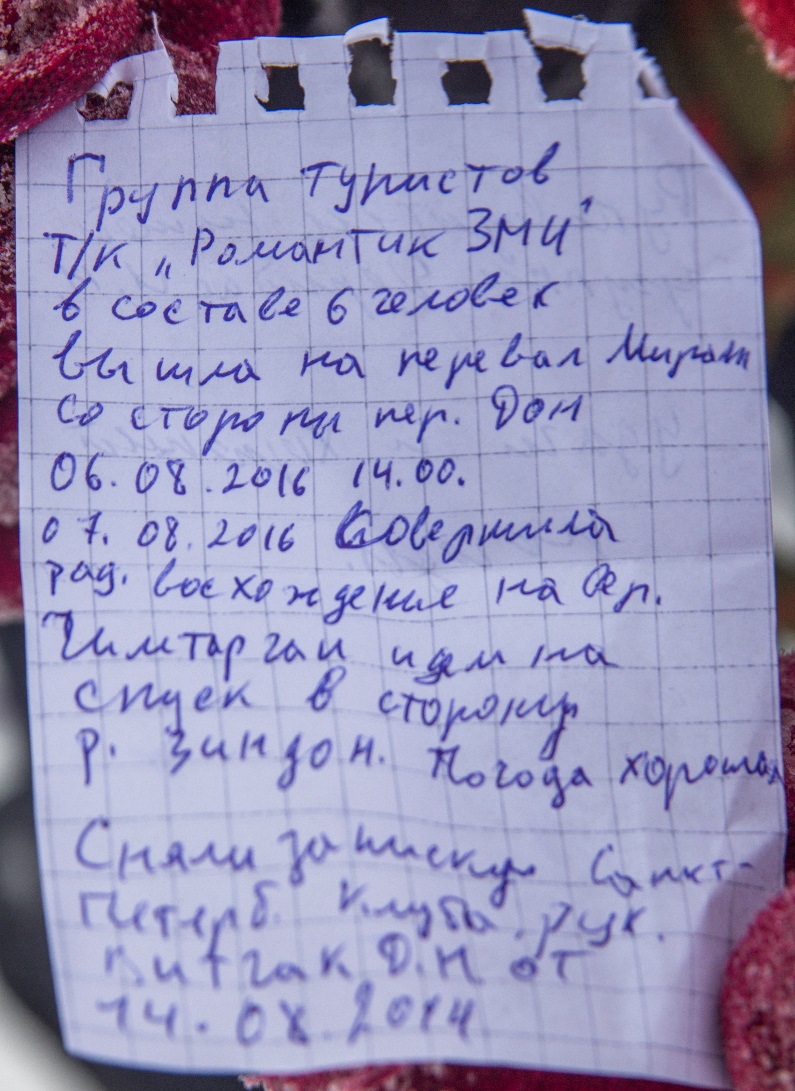 Группа туристов
Т/К „Романтик ЗМИ"
в составе 6 человек
вышла на перевал Мираж
со стороны пер. Дон
06.08.2016 14.00.
07.08.2016 Совершила
рад. восхождение на
Чимтарган идем на
спуск в сторону
р. Зиндон. Погода хорошая
Сняли записку Санкт-
Петерб. клуба. рук.
Д.Н от
14.08.2014